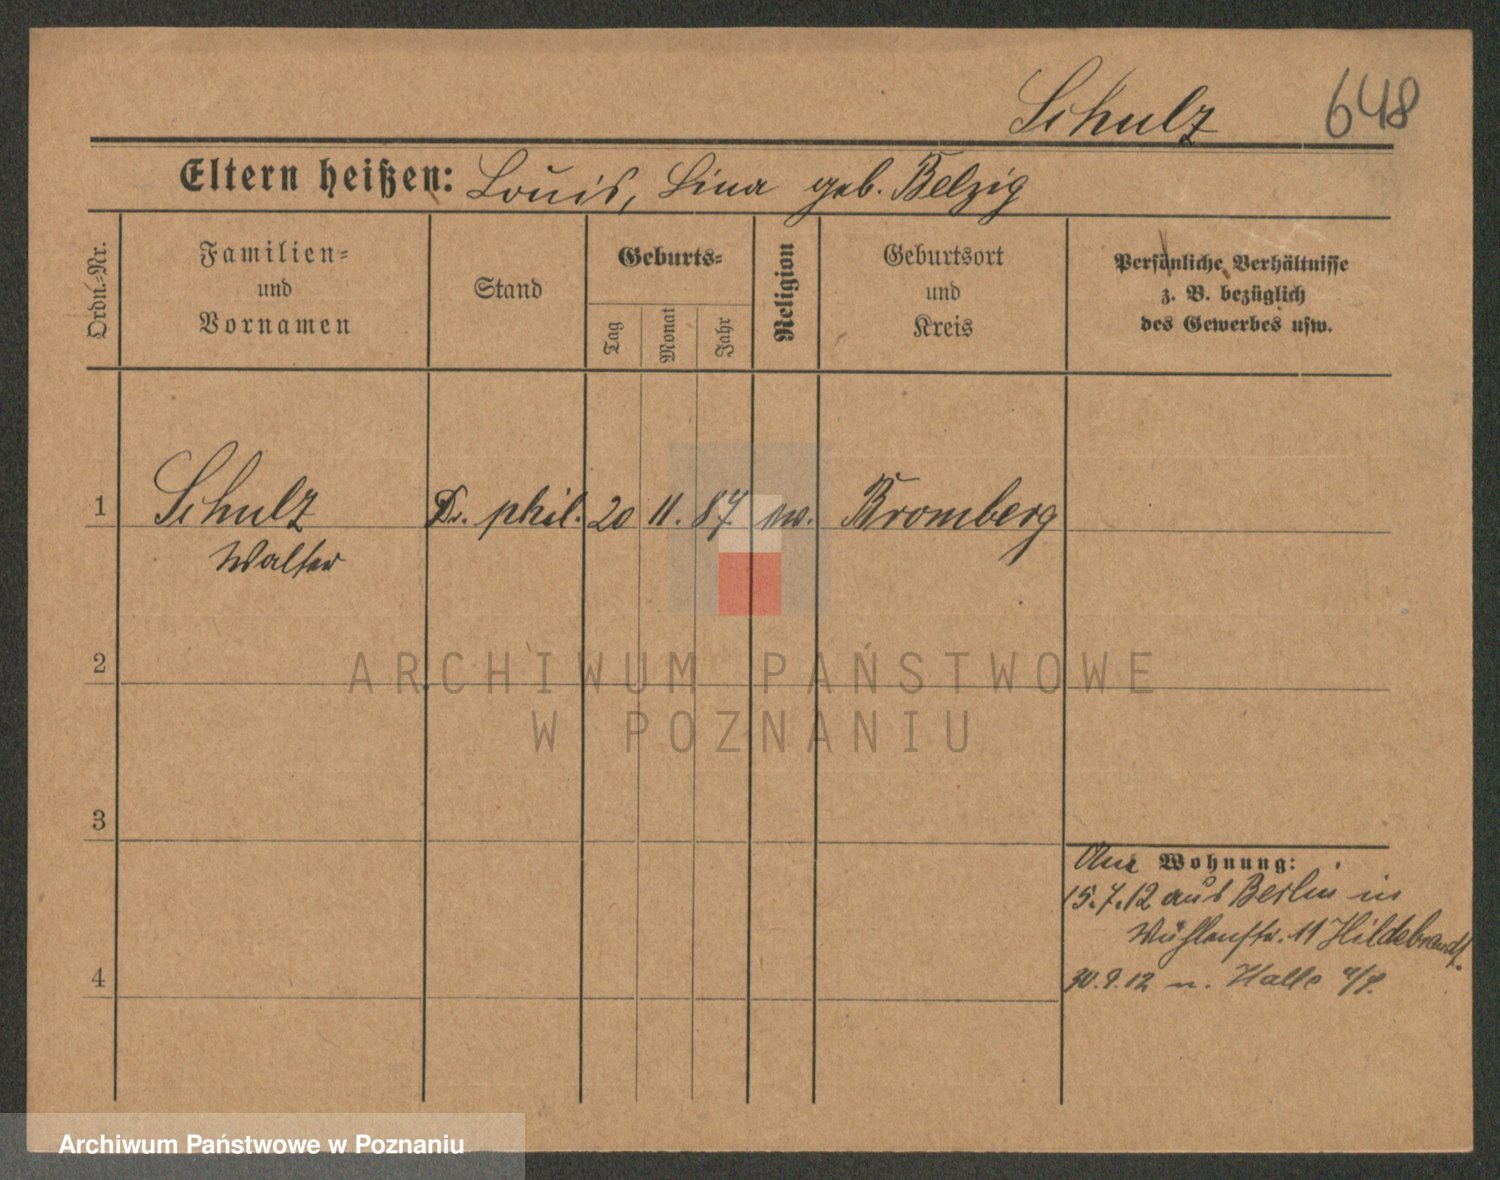 Schulz 648
Eltern heißen: Louis, Lina geb. Belzig
Ordn.-Nr.
Familien-
und
Vornamen
Stand
Geburts-
Tag
Monat
Jahr
Religion
Geburtsort
und
Kreis
Persönliche Verhältnisse
z. B. bezüglich
des Gewerbes usw.
1 Schulz Dr. phil. 20 11. 87. Bromberg
Walter
2
ARCHIWUM PAŃSTWOWE
W POZNANIU
3
Wohnung:
15.7.12 aus Berlin in
11 Hildebrandt.
4
30.9.12 n. Halle a/S.
Archiwum Państwowe w Poznaniu